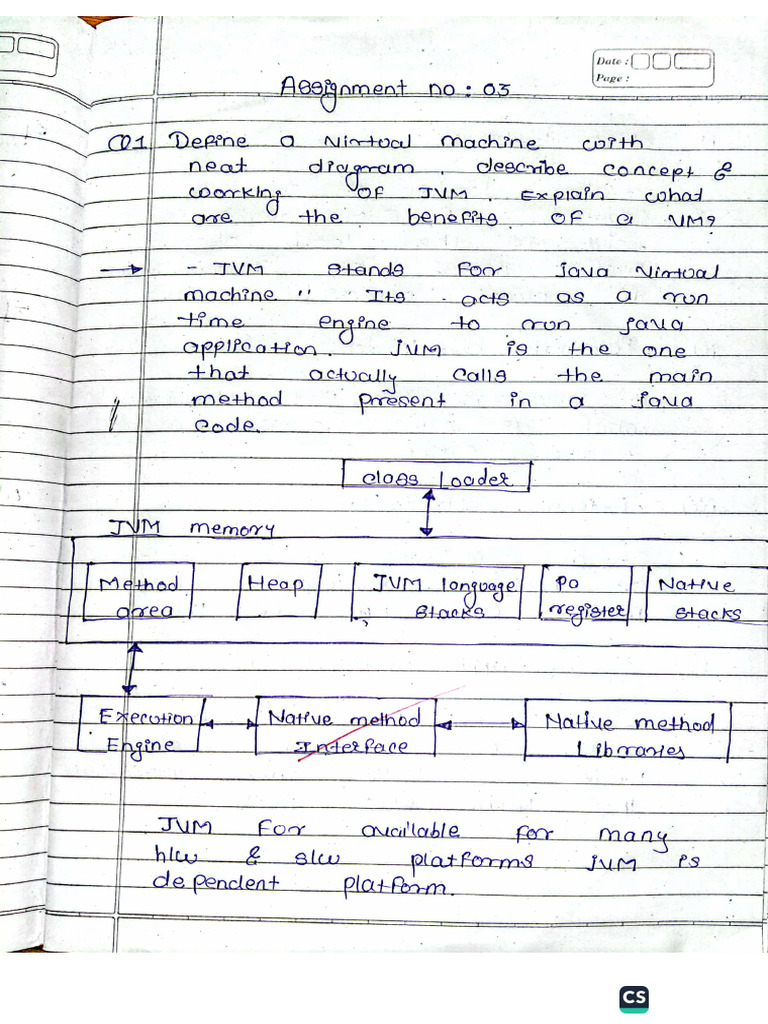 Date :
Page :
Assignment no : 03
Q1 Define a Virtual machine with
neat diagram. describe concept &
working of JVM. Explain what
are the benefits of a VM?
→ - JVM stands for java Virtual
machine " Its acts as a run
time engine to run java
application. JVM is the one
that actually calls the main
method present in a java
code.
class Loader
JVM memory
Method area
Heap
JVM language stacks
Pc register
Native stacks
Execution Engine
Native method Interface
Native method Libraries
JVM for available for many
h/w & s/w platforms JVM is
dependent platform.
CS